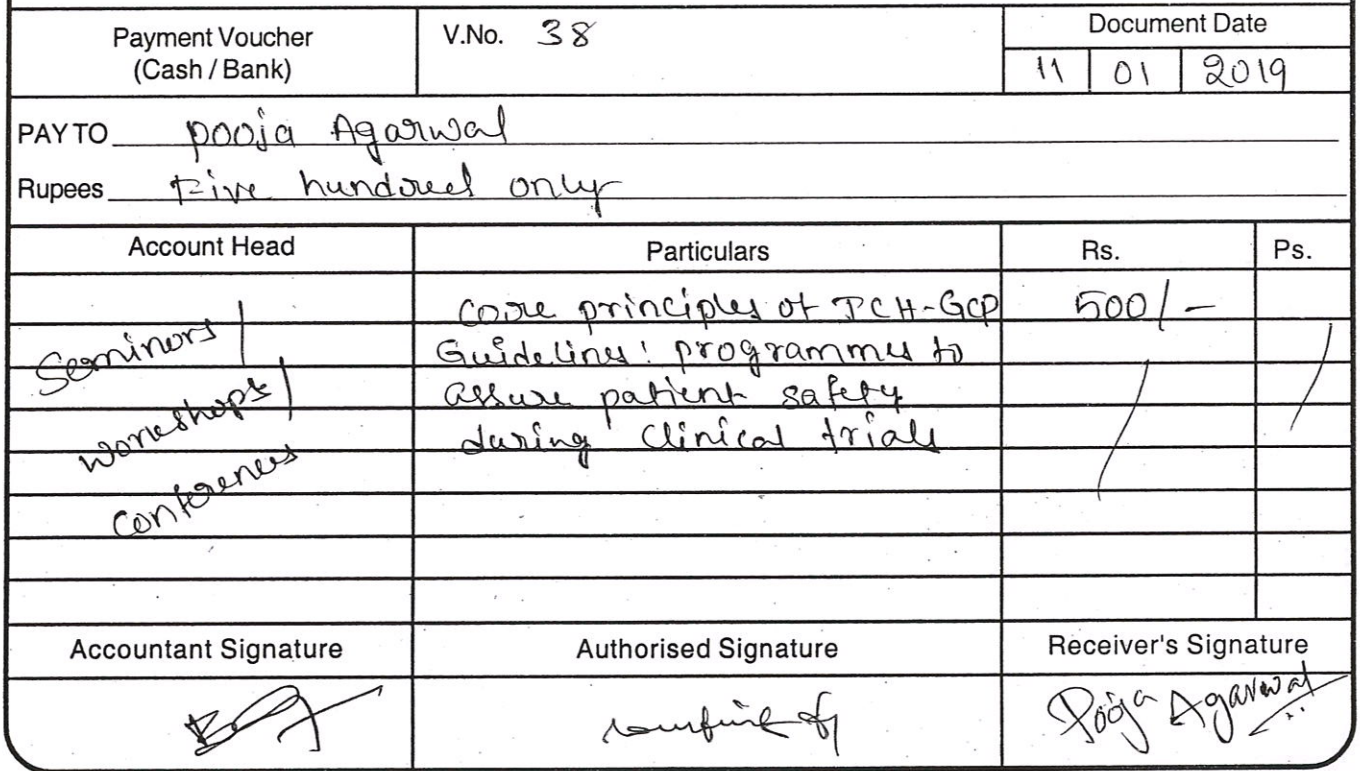 Payment Voucher
(Cash / Bank)
V.No. 38
Document Date
11 01 2019
PAY TO pooja Agarwal
Rupees Five hundred only
Account Head Particulars Rs. Ps.
Seminors/
workshops/
Conferences
Core principles of ICH-GCP 500/-
Guidelines: programmes to
assure patient safety
during clinical trials
Accountant Signature Authorised Signature Receiver's Signature
Pooja Agarwal